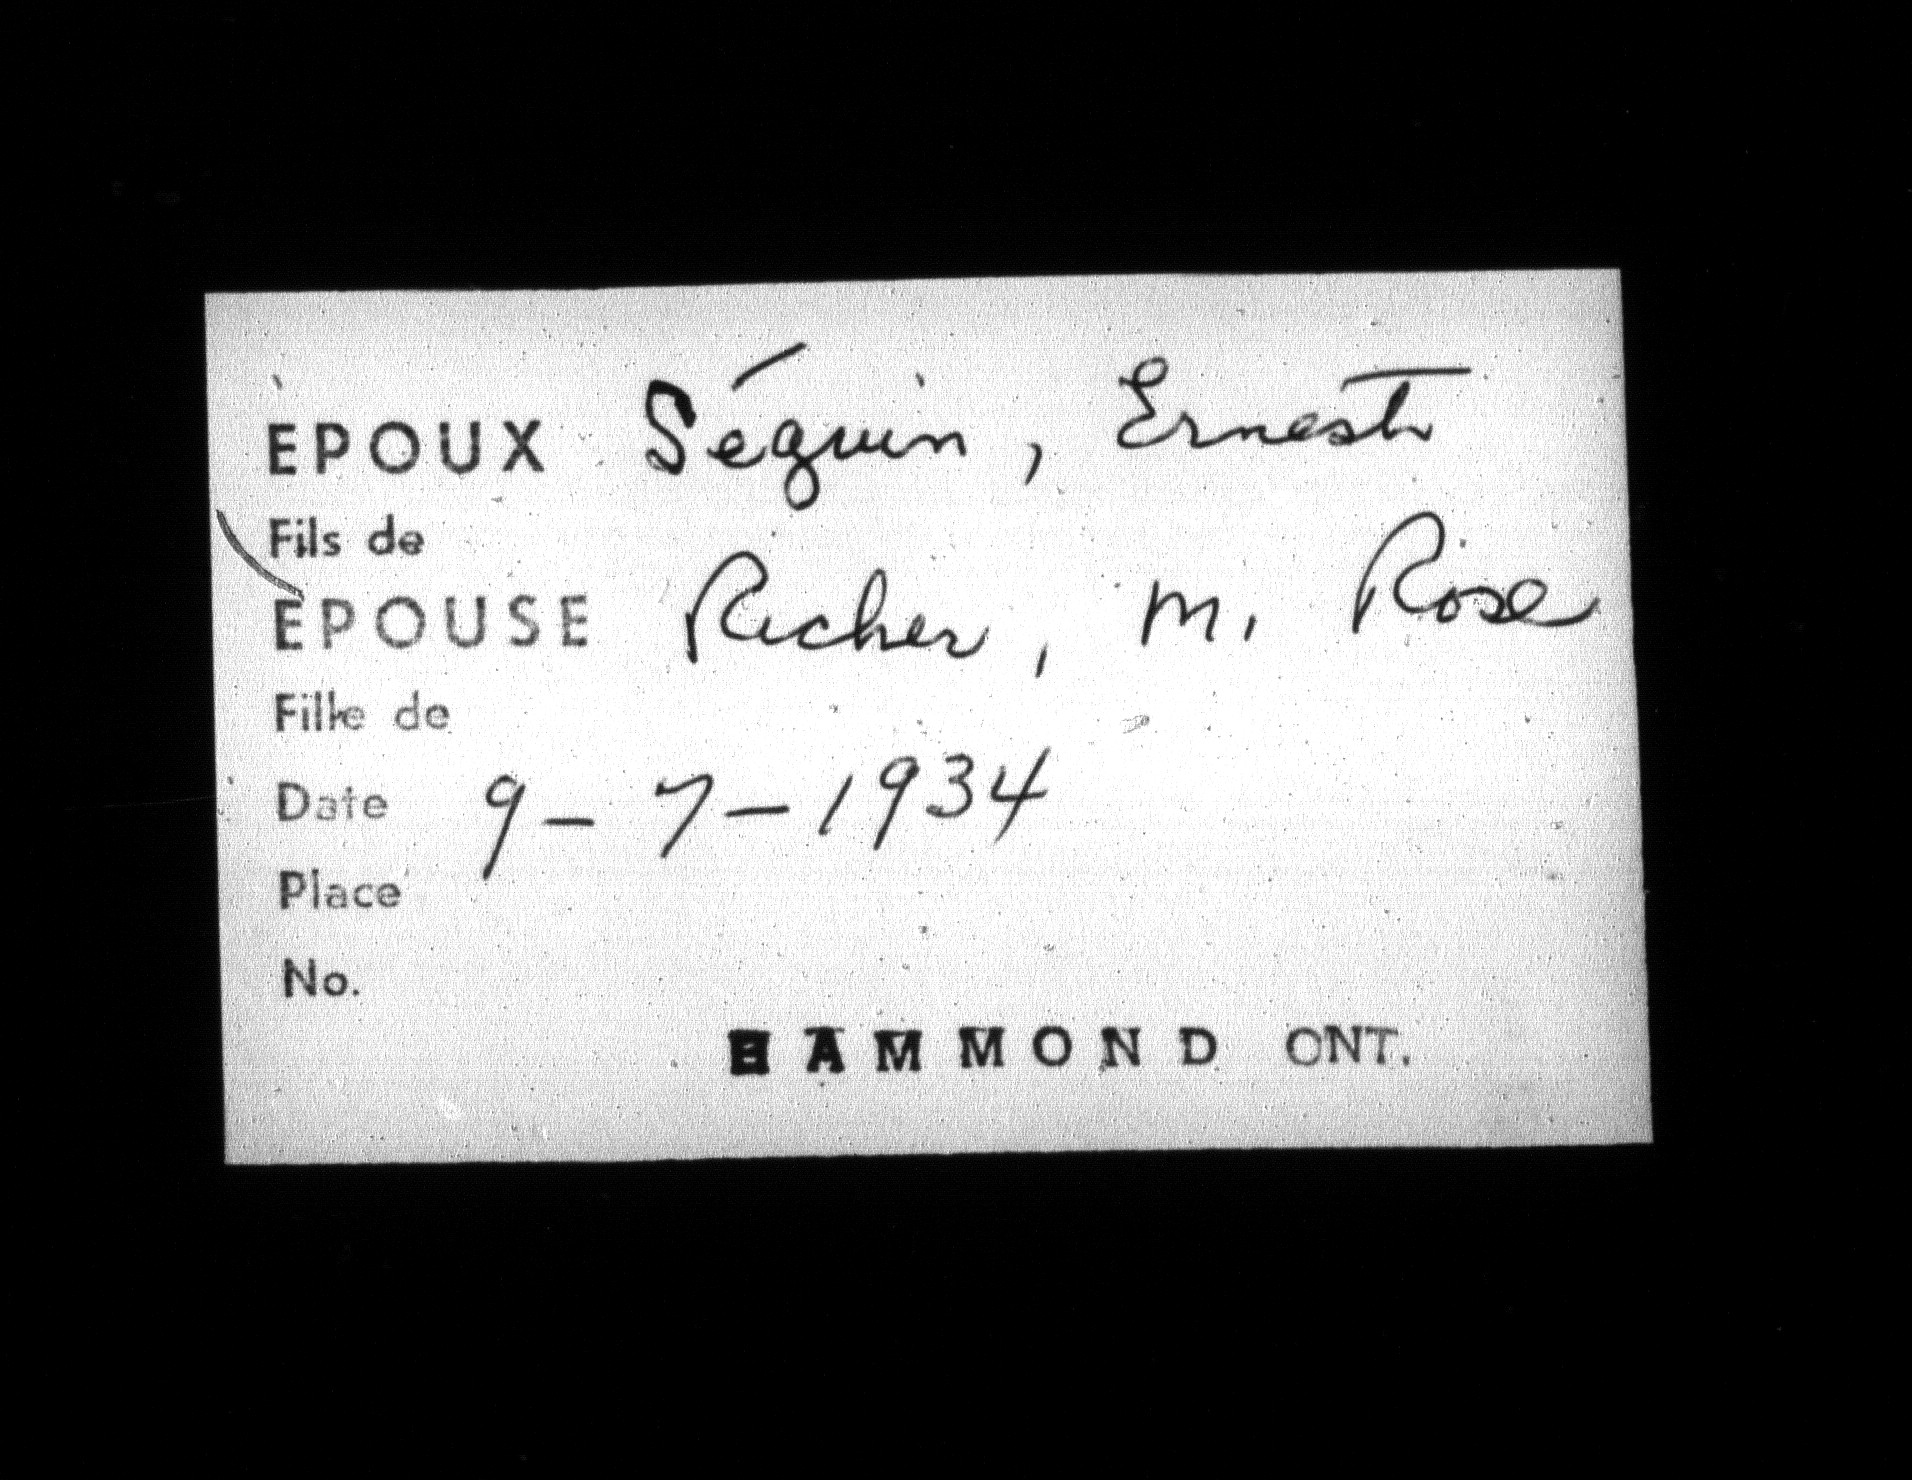 EPOUX Séguin, Ernest
Fils de
EPOUSE Richer, M. Rose
Fille de
Date 9-7-1934
Place
No.
HAMMOND ONT.